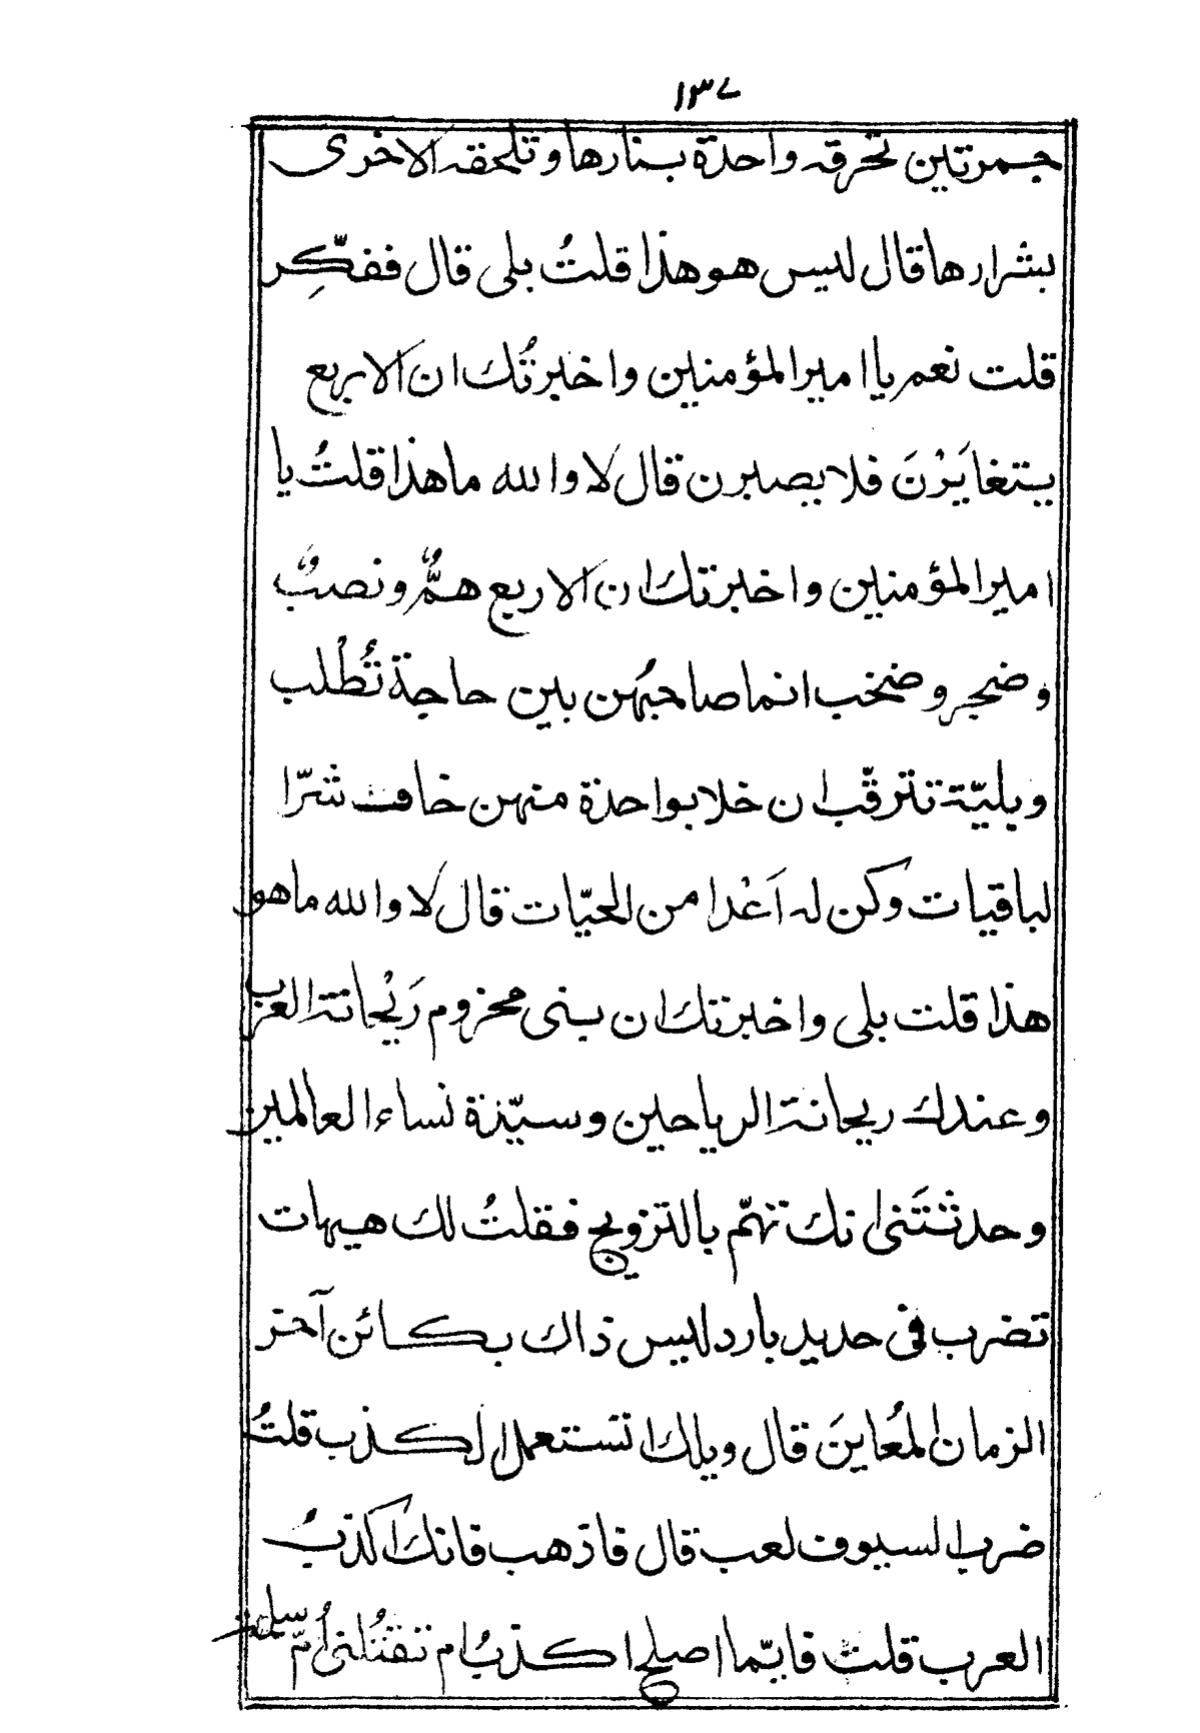 ١٣٧
جمرتين تحرقه واحدة بنارها وتلحقه الاخرى
بشرارها قال ليس هو هذا قلتُ بلى قال ففكِّر
قلت نعم يا امير المؤمنين واخبرتُك ان الاربع
يتغايَرْنَ فلا يصبرن قال لا والله ما هذا قلتُ يا
امير المؤمنين واخبرتك ان الاربع همٌّ ونصبٌ
وضجر وضخب انما صاحبُهن بين حاجة تُطْلب
وبليّة تترقّب ان خلا بواحدة منهن خاف شرّا
لباقيات وكن له اَعْدا من الحيّات قال لا والله ما هو
هذا قلت بلى واخبرتك ان بنى مخزوم رَيْحانة العرب
وعندك ريحانة الرياحين وسيّدة نساء العالمين
وحدثتَنى انك تهمّ بالتزويج فقلتُ لك هيهات
تضرب فى حديد بارد ليس ذاك بكائن آخر
الزمان المُعاينَ قال ويلك اتستعمل الكذب قلتُ
ضرب السيوف لعب قال فاذهب فانك اكذبُ
العرب قلت فايّما اصلح اكذبُ ام تقتُلنى اُمّ سلمة